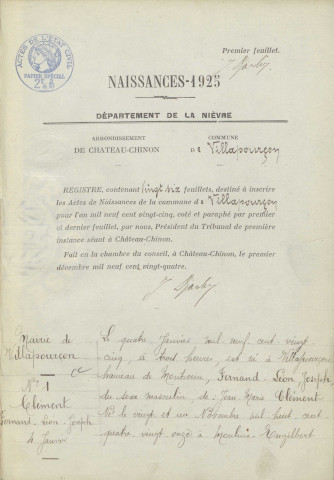 Premier feuillet.
ACTES DE L'ETAT CIVIL
PAPIER SPÉCIAL
NAISSANCES-1925
DÉPARTEMENT DE LA NIÈVRE
ARRONDISSEMENT
DE CHATEAU-CHINON
COMMUNE
DE Villapourçon
REGISTRE, contenant vingt six feuillets, destiné à inscrire
les Actes de Naissances de la commune de Villapourçon
pour l'an mil neuf cent vingt-cinq, coté et paraphé par premier
et dernier feuillet, par nous, Président du Tribunal de première
instance séant à Château-Chinon.
Fait en la chambre du conseil, à Château-Chinon, le premier
décembre mil neuf cent vingt-quatre.
Mairie de
Villapourçon
N° 1
Clément
Fernand Léon Joseph
4 Janvier
Le quatre Janvier mil neuf cent vingt
cinq, à trois heures, est né à Villapourçon
hameau de Fernand Léon Joseph
du sexe masculin de Jean Marie Clément
né le vingt et un Novembre mil huit cent
quatre vingt onze à Moulins Engilbert